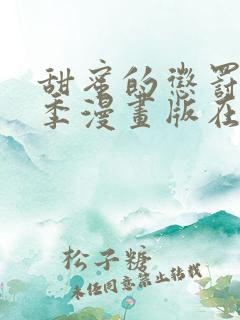 甜蜜的懲罰
季漫畫版在
松子糖
未任同意禁止转载